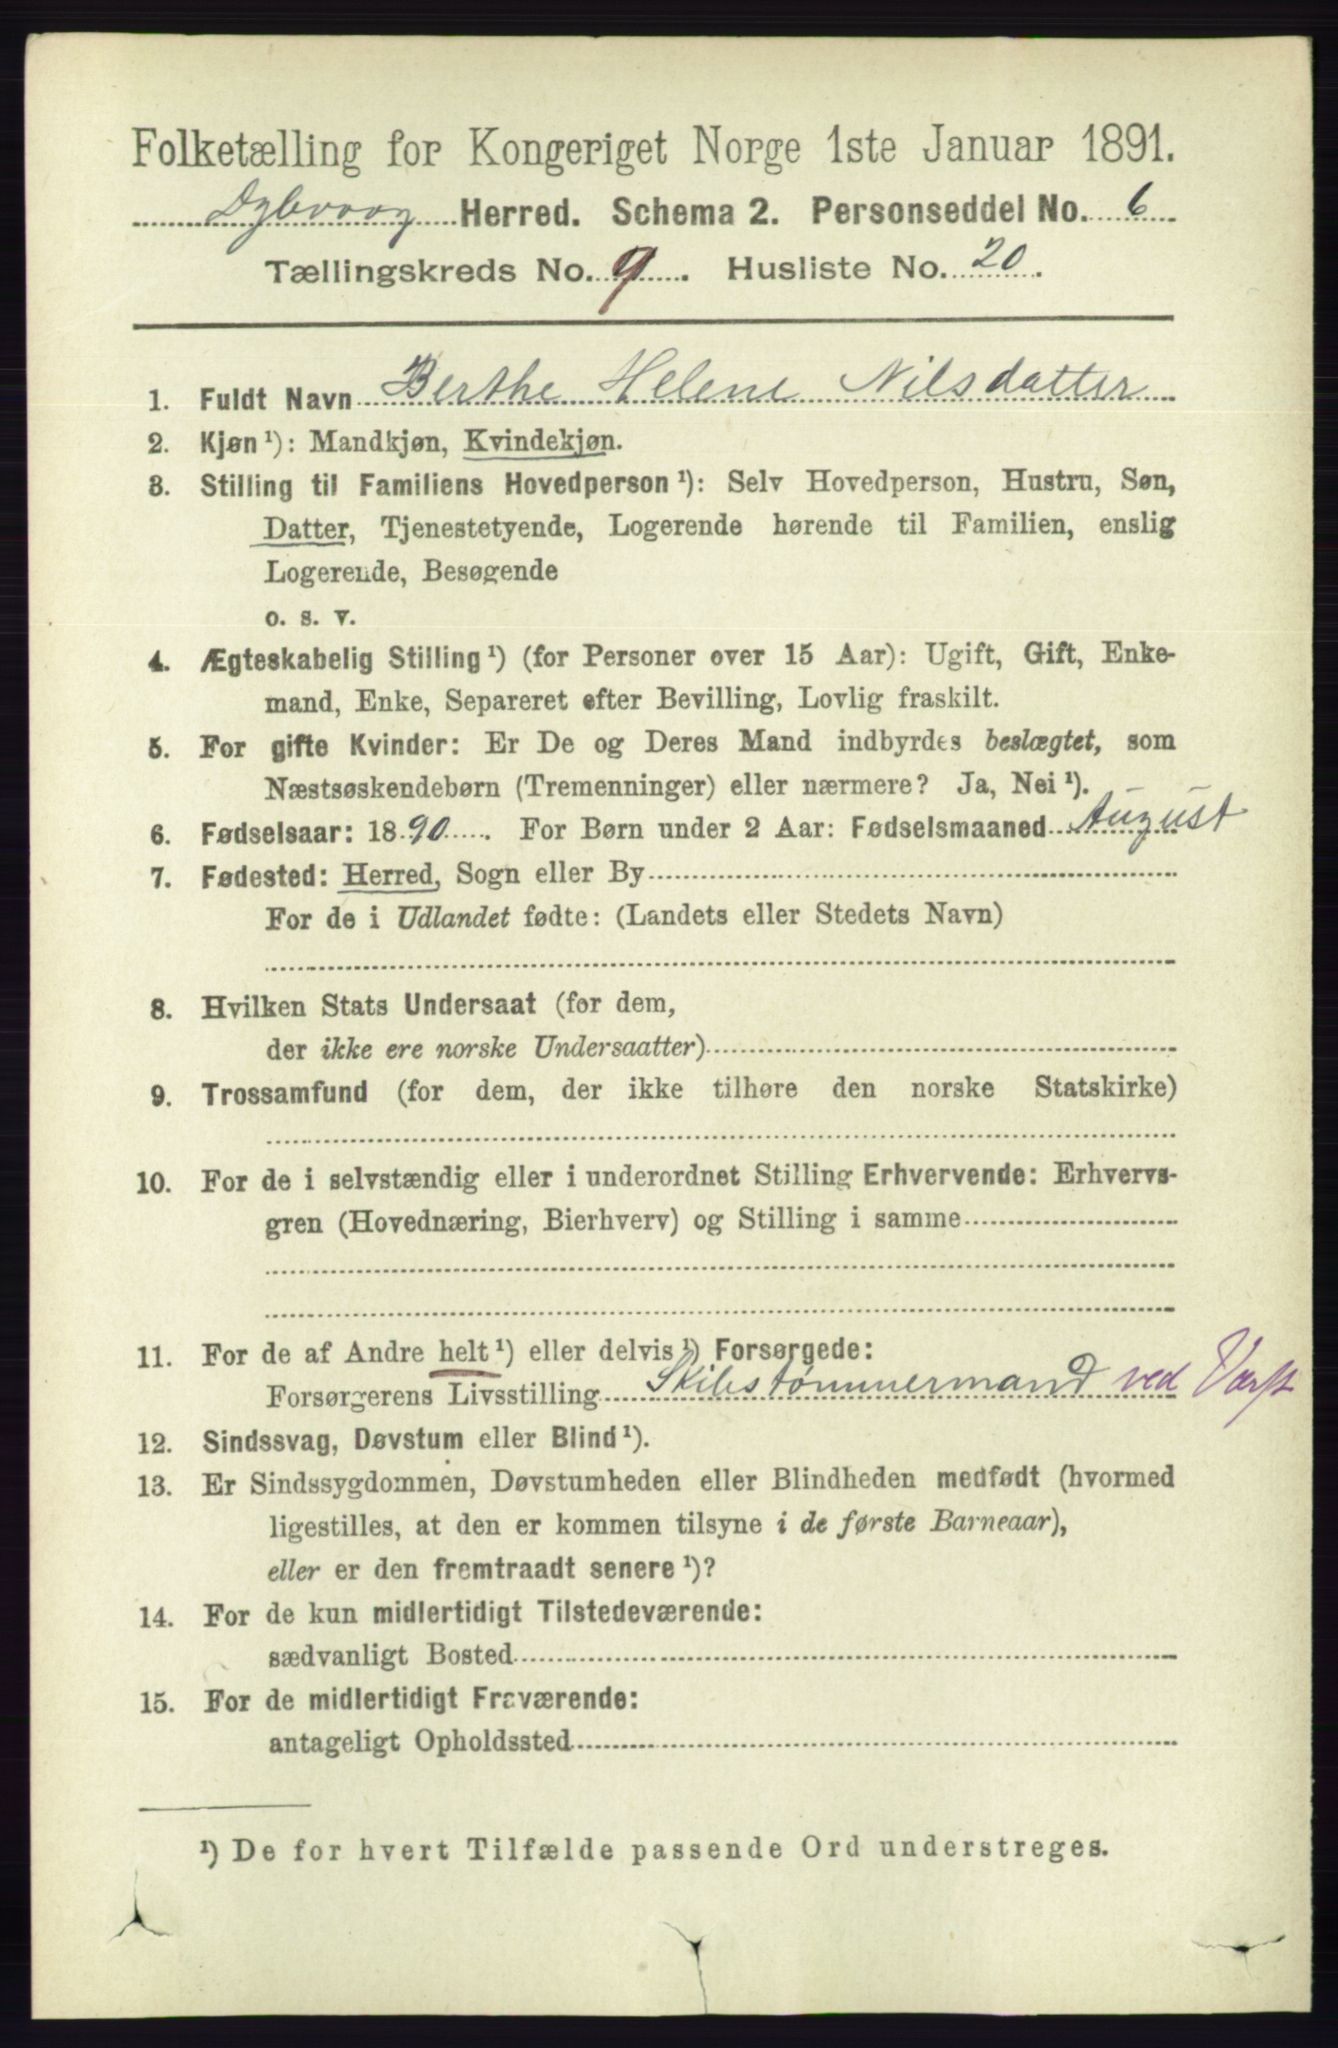 Folketælling for Kongeriget Norge 1ste Januar 1891.
Dybvaag Herred. Schema 2. Personseddel No. 6
Tællingskreds No. 9. Husliste No. 20.
1. Fuldt Navn Berthe Helene Nilsdatter
2. Kjøn ¹): Mandkjøn, Kvindekjøn.
3. Stilling til Familiens Hovedperson ¹): Selv Hovedperson, Hustru, Søn,
Datter, Tjenestetyende, Logerende hørende til Familien, enslig
Logerende, Besøgende
o. s. v.
4. Ægteskabelig Stilling ¹) (for Personer over 15 Aar): Ugift, Gift, Enke-
mand, Enke, Separeret efter Bevilling, Lovlig fraskilt.
5. For gifte Kvinder: Er De og Deres Mand indbyrdes beslægtet, som
Næstsøskendebørn (Tremenninger) eller nærmere? Ja, Nei ¹).
6. Fødselsaar: 1890. For Børn under 2 Aar: Fødselsmaaned August
7. Fødested: Herred, Sogn eller By
For de i Udlandet fødte: (Landets eller Stedets Navn)
8. Hvilken Stats Undersaat (for dem,
der ikke ere norske Undersaatter)
9. Trossamfund (for dem, der ikke tilhøre den norske Statskirke)
10. For de i selvstændig eller i underordnet Stilling Erhvervende: Erhvervs-
gren (Hovednæring, Bierhverv) og Stilling i samme
11. For de af Andre helt ¹) eller delvis ¹) Forsørgede:
Forsørgerens Livsstilling Skibstømmermand ved Værft
12. Sindssvag, Døvstum eller Blind ¹).
13. Er Sindssygdommen, Døvstumheden eller Blindheden medfødt (hvormed
ligestilles, at den er kommen tilsyne i de første Barneaar),
eller er den fremtraadt senere ¹)?
14. For de kun midlertidigt Tilstedeværende:
sædvanligt Bosted
15. For de midlertidigt Fraværende:
antageligt Opholdssted
¹) De for hvert Tilfælde passende Ord understreges.